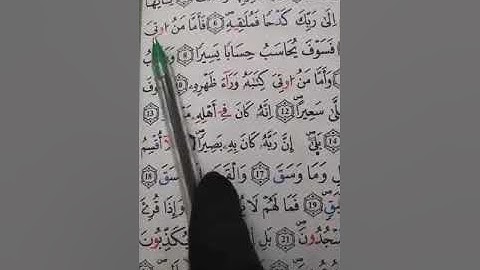 إِلَىٰ رَبِّكَ كَدْحًا فَمُلَٰقِيهِ 6 فَأَمَّا مَنُ ا۟وتِيَ
فَسَوْفَ يُحَاسَبُ حِسَابًا يَسِيرًا 8
وَأَمَّا مَنُ ا۟وتِيَ كِتَٰبَهُۥ وَرَآءَ ظَهْرِهِۦ
سَعِيرًا 12 اِنَّهُۥ كَانَ فِےٓ أَهْلِهِۦ 13
14 بَلَىٰٓ إِنَّ رَبَّهُۥ كَانَ بِهِۦ بَصِيرًا أُقْسِمُ
وَمَا وَسَقَ 17 وَالْقَ سَقَ 18
19 فَمَا لَهُمْ لَا وَإِذَا قُرِئَ
سْجُدُونَ 21 بَلِ يُكَذِّبُونَ